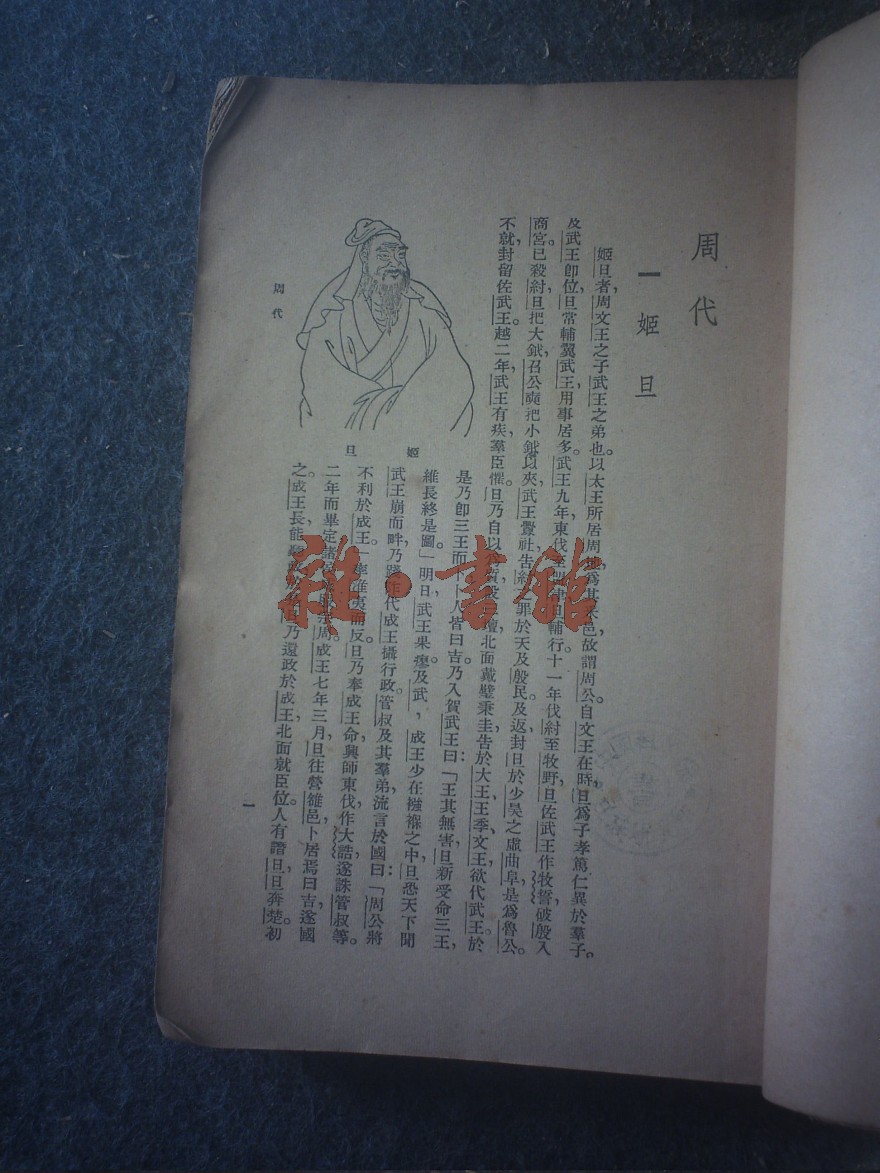 周代
一 姬旦
姬旦者，周文王之子，武王之弟也。以太王所居周地，爲其采邑，故謂周公。自文王在時，旦爲子孝，篤仁異於羣子。
及武王卽位，旦常輔翼武王，用事居多。武王九年，東伐至盟津，旦輔行。十一年，伐紂至牧野，旦佐武王作牧誓，破殷入
商宮。已殺紂，旦把大鉞，召公奭把小鉞，以夾武王，釁社，告紂之罪於天，及殷民。及返，封旦於少昊之虛曲阜，是爲魯公。
不就封，留佐武王。越二年，武王有疾，羣臣懼。旦乃自以爲質，設三壇，北面戴璧秉圭，告於大王、王季、文王，欲代武王。於
是乃卽三王而卜，卜人皆曰吉，乃入賀武王曰：「王其無害，旦新受命三王，
維長終是圖」明日，武王果瘳。及武，成王少，在襁褓之中，旦恐天下聞
武王崩而畔，乃踐阼代成王攝行政。管叔及其羣弟流言於國曰：「周公將
不利於成王」率淮夷而反。旦乃奉成王命，興師東伐，作大誥，遂誅管叔等。
二年而畢定，諸宗周。成王七年三月，旦往營雒邑，卜居焉，曰吉，遂國
之。成王長，能聽，乃還政於成王，北面就臣位。人有譖旦，旦奔楚。初
姬旦
周代
一
雜·書館